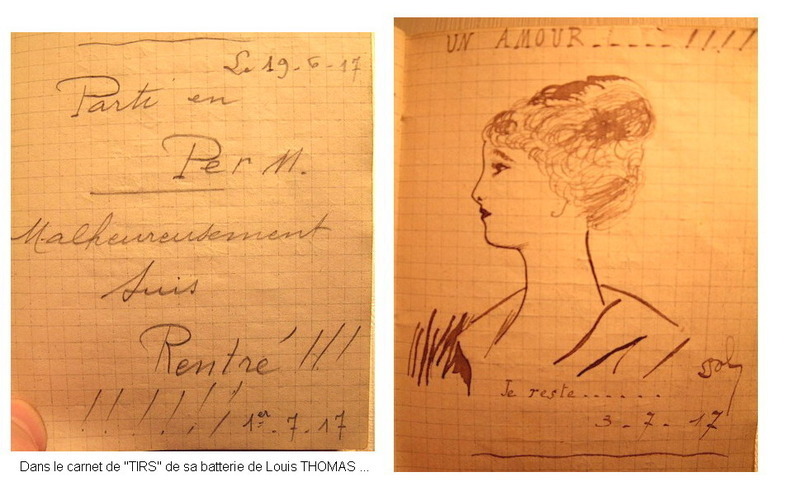 Le 19-6-17
Parti en
Perm.
Malheureusement
suis
Rentré !!!
!!!!!!
1er-7-17
UN AMOUR......!!!!
Je reste......
3-7-17
Dans le carnet de "TIRS" de sa batterie de Louis THOMAS ...